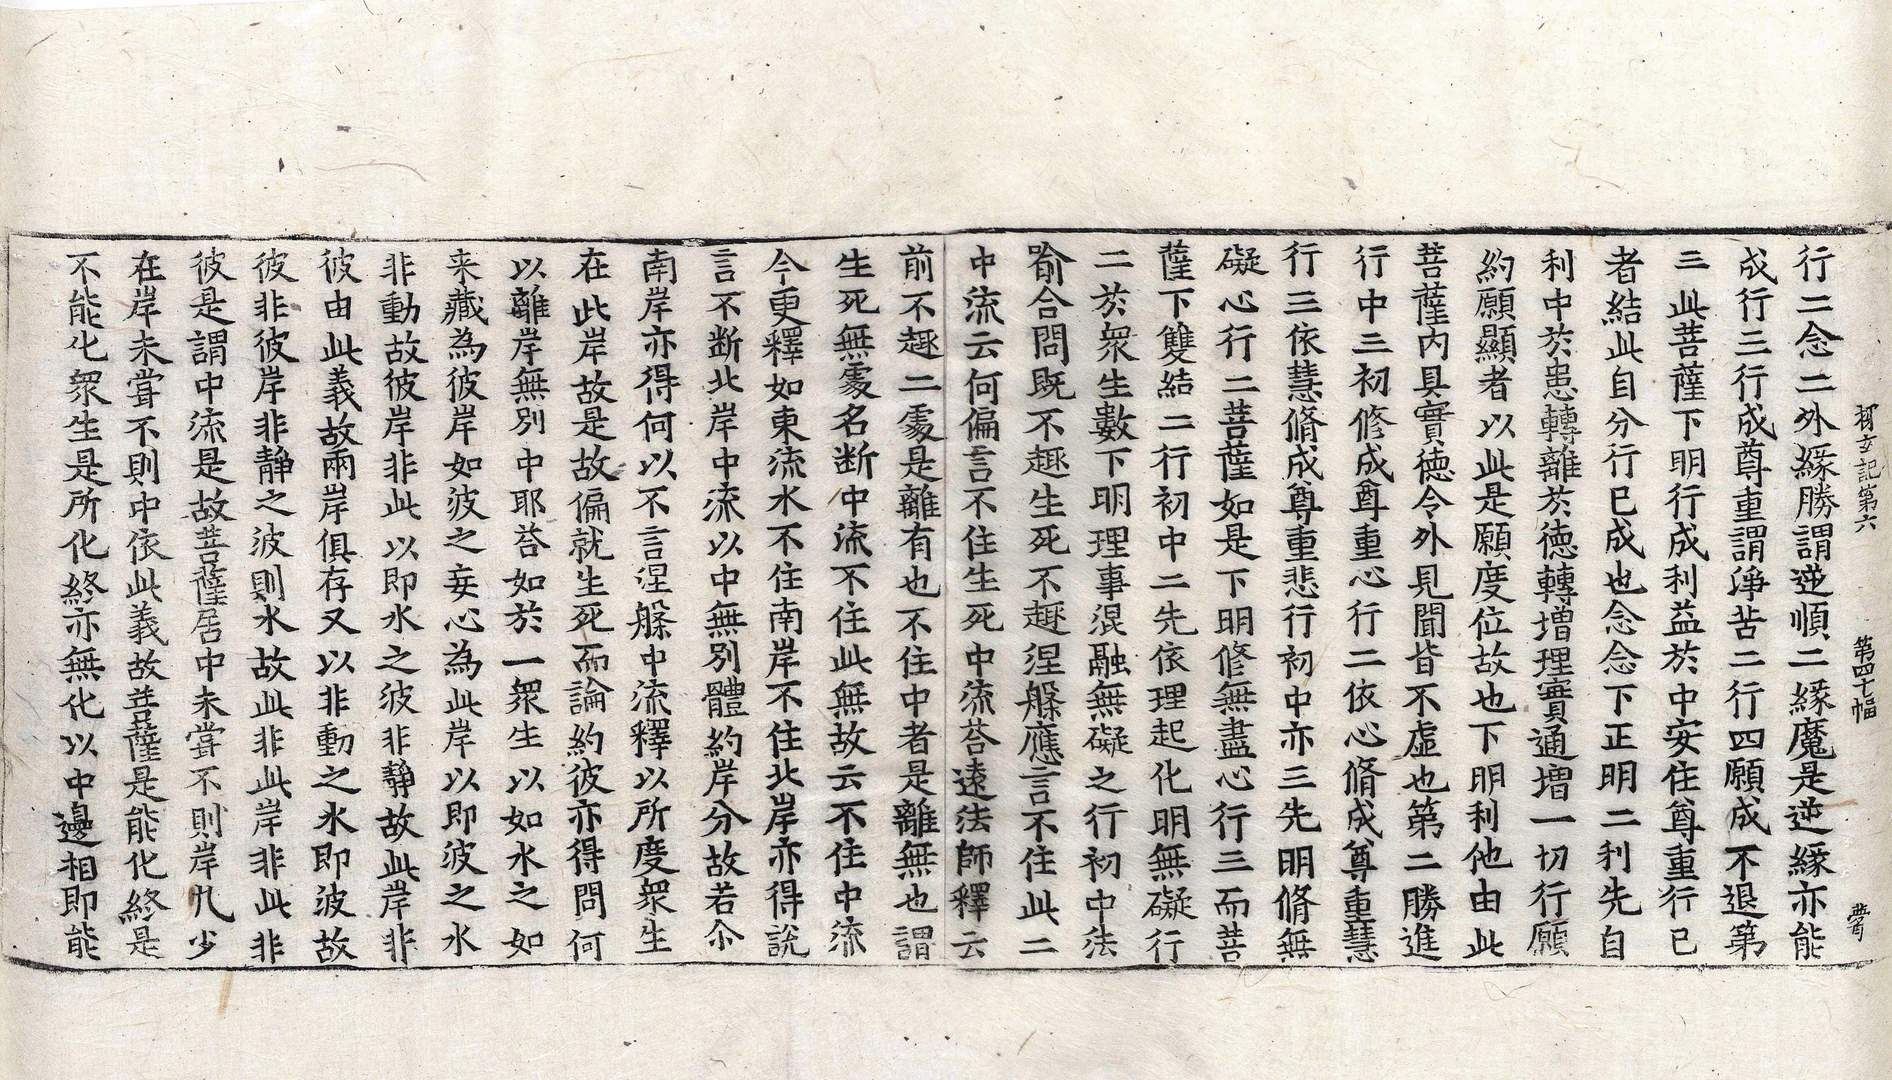 探玄記第六 第四七幅
行二念二外緣勝謂逆順二緣魔是逆緣亦能
成行三行成尊重謂淨苦二行四願成不退第
三此菩薩下明行成利益於中安住尊重行已
者結此自分行已成也念念下正明二利先自
利中於患轉離於德轉增理實通增一切行願
約願顯者以此是願度位故也下明利他由此
菩薩内具實德令外見聞皆不虛也第二勝進
行中三初修成尊重心行二依心脩成尊重慧
行三依慧脩成尊重悲行初中亦三先明脩無
礙心行二菩薩如是下明修無盡心行三而菩
薩下雙結二行初中二先依理起化明無礙行
二於衆生數下明理事混融無礙之行初中法
喻合問既不趣生死不趣涅槃應言不住此二
中流云何偏言不住生死中流荅遠法師釋云
前不趣二處是離有也不住中者是離無也謂
生死無處名断中流不住此無故云不住中流
今更釋如東流水不住南岸不住北岸亦得說
言不断北岸中流以中無別體約岸分故若尒
南岸亦得何以不言涅槃中流釋以所度衆生
在此岸故是故偏就生死而論約彼亦得問何
以離岸無別中耶荅如於一衆生以如水之如
来藏為彼岸如波之妄心為此岸以即波之水
非動故彼岸非此以即水之波非靜故此岸非
彼由此義故兩岸俱存又以非動之水即波故
彼非彼岸非靜之波則水故此非此岸非此非
彼是謂中流是故菩薩居中未甞不則岸九少
在岸未甞不則中依此義故菩薩是能化終是
不能化衆生是所化終亦無化以中邊相即能